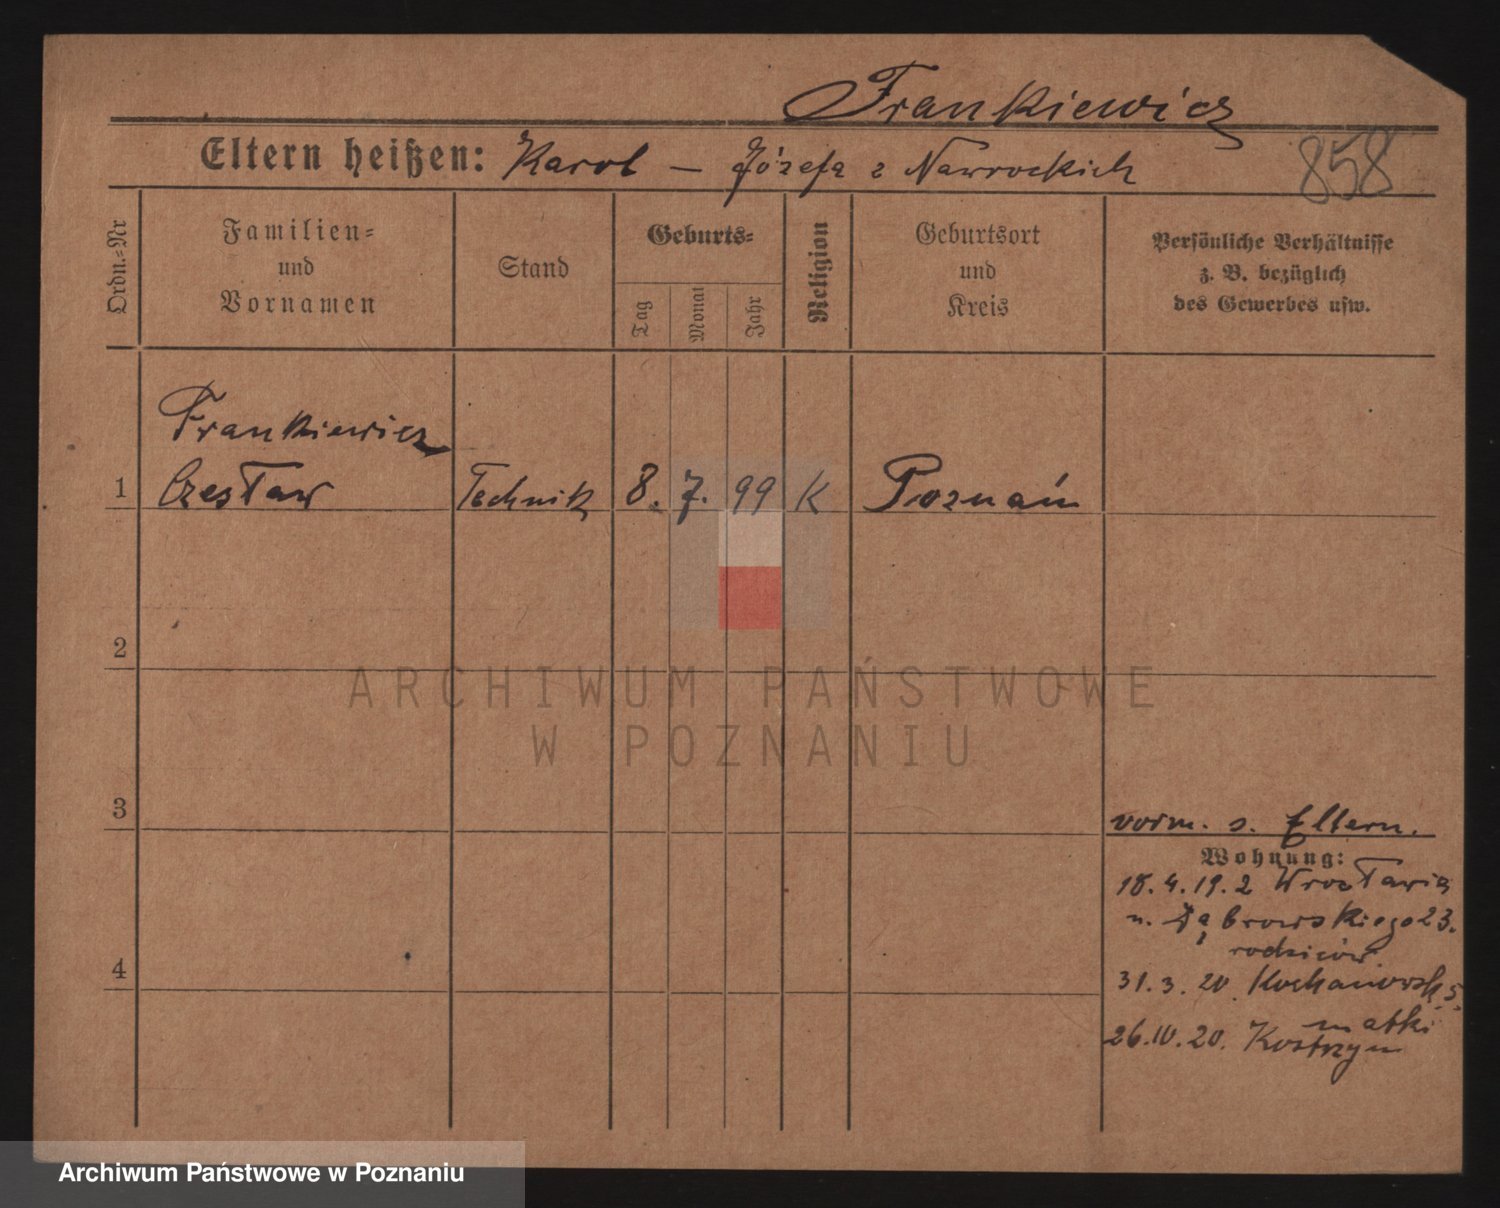 Frankiewicz
Eltern heißen: Karol — Józefa z Nawrockich
858
Ordn.=Nr
Familien=
und
Vornamen
Stand
Geburts=
Tag
Monat
Jahr
Religion
Geburtsort
und
Kreis
Persönliche Verhältnisse
z. B. bezüglich
des Gewerbes usw.
Frankiewicz
1 Czesław Technik 8. 7. 99 K Poznań
2
ARCHIWUM PAŃSTWOWE
W POZNANIU
3
vorm. s. Eltern.
Wohnung:
18.4.19.2 Wrocławia
u. Dąbrowskiego 23.
rodziców.
4
31.3.20. Kochanowsk. 5.
matki
26.10.20. Kostrzyn
Archiwum Państwowe w Poznaniu